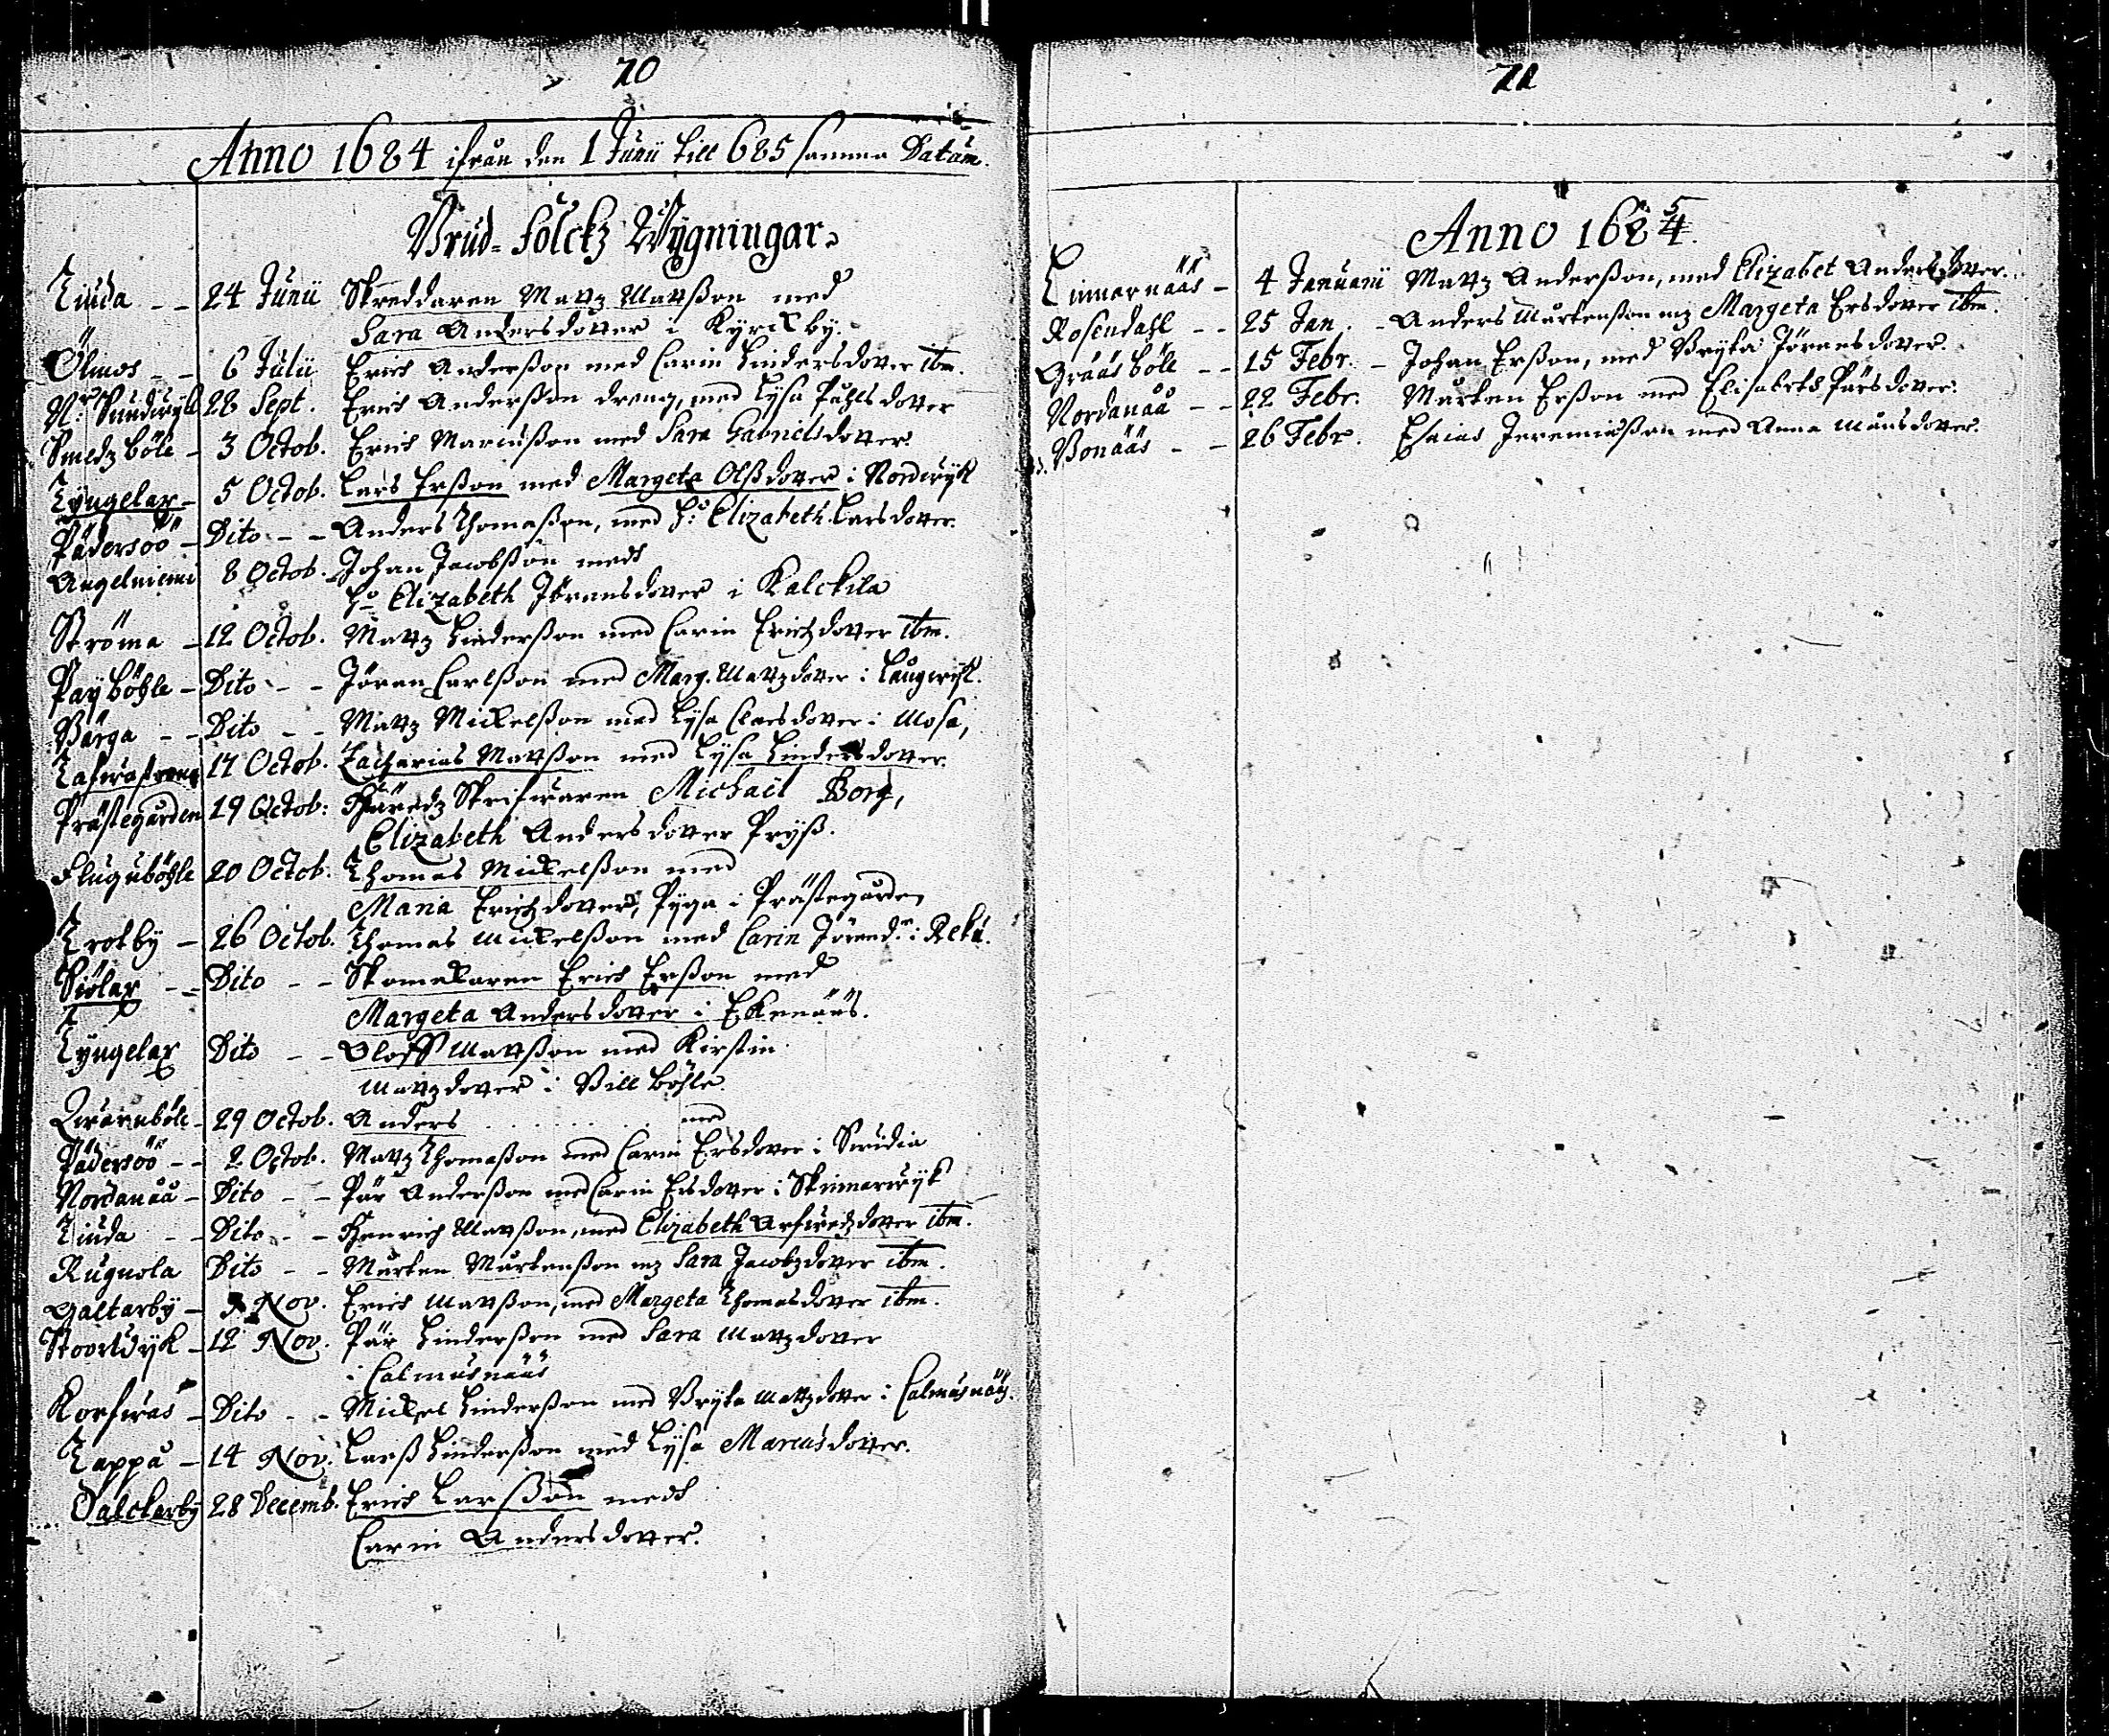 70
Anno 1684 ifrån den 1 Junii till 685 samma Datum.
Brud-folckz Wygningar.
Liuda -- 24 Junii Skreddaren Mattz Mattßon med
Sara Andersdotter i Kyrckby.
Ölmos -- 6 Julii Erich Anderßon med Carin Hindersdotter ibm.
N: Sundwijk 28 Sept. Erich Anderßon dreng, med Lysa Påhlsdotter
Smedzböle - 3 Octob. Erich Marcusson med Sara Gabrielsdotter.
Lyngelax - 5 Octob. Lars Erßon med Margeta Olßdotter i Nordwijk
Pädersöö - Dito -- Anders Thomaßon, med H: Elizabeth Larsdotter.
Angelniemi 8 Octob. Johan Jacobßon medh
H: Elizabeth Jöransdotter i Kalckila
Ströma - 12 Octob. Mattz Hinderßon med Carin Erichzdotter ibm.
Payböhle - Dito -- Jöran Carlßon med Marg. Mattzdotter i Laugwijk.
Bärga -- Dito -- Mattz Mickelßon med Lysa Claesdotter i Mosa,
17 Octob. Zacharias Mattßon med Lysa Hindersdotter.
Prästegården 19 Octob: Häredz Skrifwaren Michaël Borg,
Elizabeth Andersdotter Pryß.
Fluguböhle 20 Octob. Thomas Mickelßon med
Maria Erichzdotter, Pyga i Prästegården
Trotby - 26 Octob. Thomas Mickelßon med Carin Jörensd. i Reku.
Siölax -- Dito -- Skomakaren Erich Erßon med
Margeta Andersdotter i Ekenääs.
Lyngelax Dito -- Oloff Mattßon med Kirstin
Mattzdotter i Billböhle
Qwarnböle - 29 Octob. Anders . . . . . . . . med
Pädersöö -- 2 Octob. Mattz Thomaßon med Carin Ersdotter i Swidia
Nordanåå - Dito -- Pär Anderßon med Carin Ersdotter i Skinnarwijk
Liuda -- Dito -- Henrich Mattßon, med Elizabeth Arfwedzdotter ibm.
Rugnola Dito -- Mårten Mårtenßon mz Sara Jacobzdotter ibm.
Galtarby - 9 Nov. Erich Mattßon, med Margeta Thomasdotter ibm.
Stoordyk - 12 Nov. Pär Hinderßon med Sara Mattzdotter
i Calmusnääs
Korfwas - Dito -- Mickel Hinderßon med Bryta Mattzdotter i Calmusnääs.
Lappå - 14 Nov. Larß Hinderßon med Lysa Marcusdotter.
Dalckarby 28 Decemb. Erich Larßon medh
Carin Andersdotter.
71
Anno 1684 5.
Linnarnääs - 4 Januarii Mattz Anderßon, med Elizabet Andersdotter.
Rosendahl -- 25 Jan. - Anders Mårtenßon mz Margeta Ersdotter ibm.
Gräåsböle -- 15 Febr. - Johan Erßon, med Bryta Jöransdotter.
Nordanåå -- 22 Febr. Mårten Erßon med Elisabeth Pärsdotter.
Bonääs -- 26 Febr. Esaias Jeremiaßon med Anna Månsdotter.